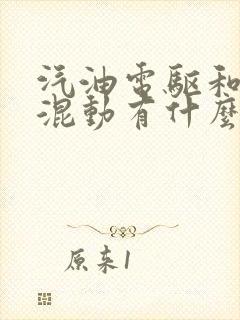 汽油電驅和
混動有什麼
原来1